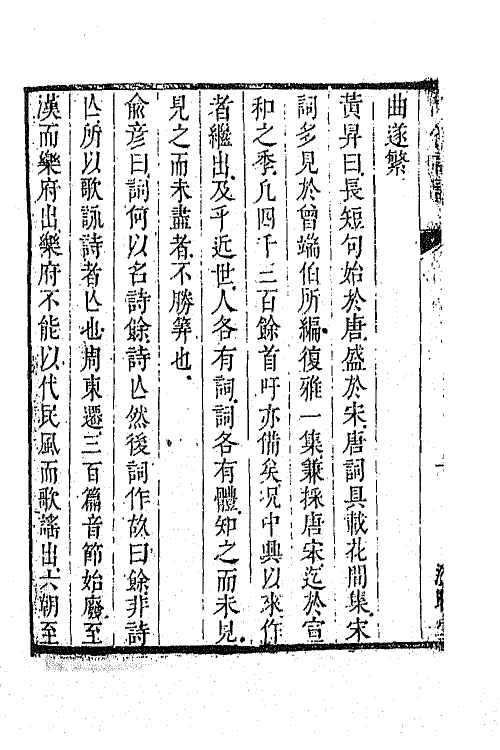 曲遂繁
黃昇曰長短句始於唐盛於宋唐詞具載花間集宋
詞多見於曾端伯所編復雅一集兼採唐宋迄於宣
和之季凡四千三百餘首吁亦備矣況中興以來作
者繼出及乎近世人各有詞詞各有體知之而未見
見之而未盡者不勝筭也
兪彥曰詞何以名詩餘詩亾然後詞作故曰餘非詩
亾所以歌詠詩者亾也周東遷三百篇音節始廢至
漢而樂府出樂府不能以代民風而歌謠出六朝至